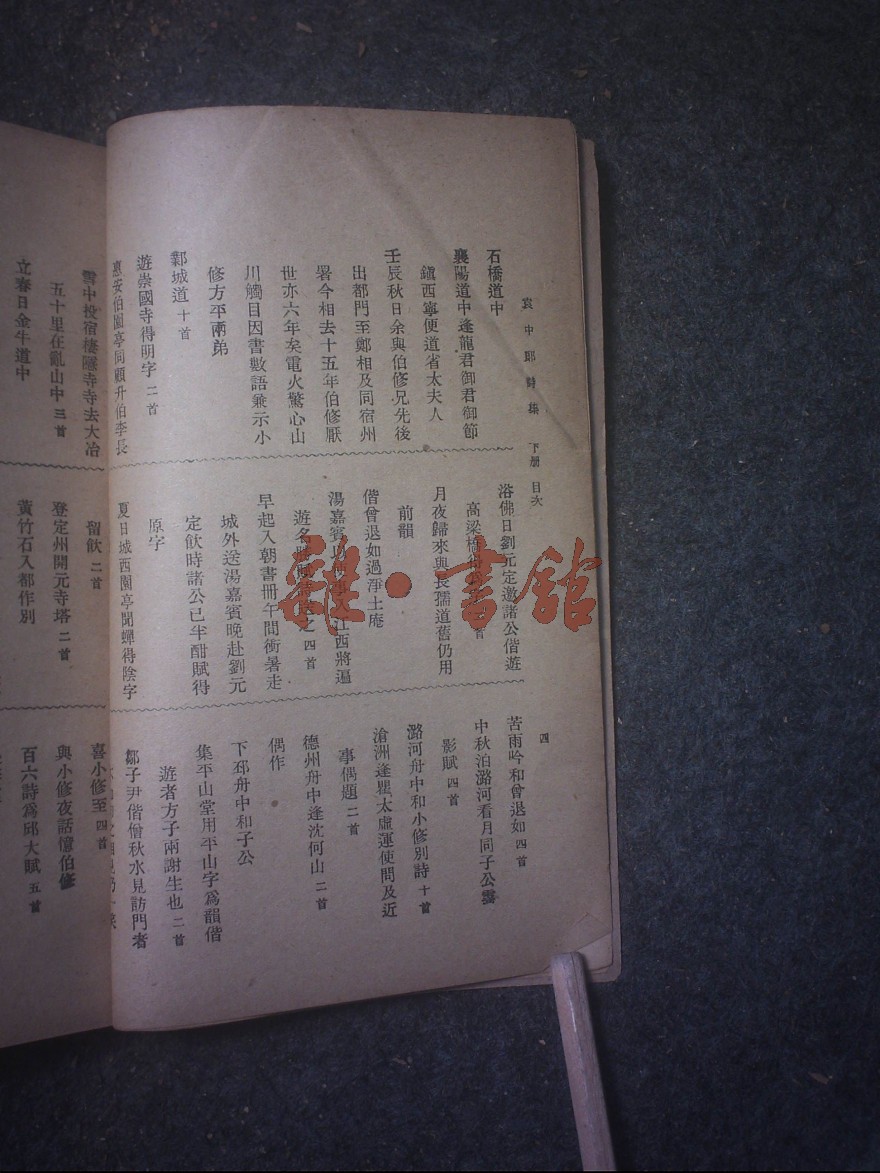 袁中郎詩集 下册 目次
四
石橋道中
襄陽道中逢龍君御君御節
鎭西寧便道省太夫人
壬辰秋日余與伯修兄先後
出都門至鄭相及同宿州
署今相去十五年伯修厭
世亦六年矣電火驚心山
川觸目因書數語兼示小
修方平兩弟
鄴城道 十首
遊崇國寺得明字 二首
惠安伯園亭同顧升伯李長
浴佛日劉元定邀諸公偕遊
高梁橋
首
月夜歸來與長孺道舊仍用
前韻
偕曾退如過淨土庵
湯嘉賓以
江西將遍
遊名勝賦詩
之 四首
早起入朝書冊午間衝暑走
城外送湯嘉賓晚赴劉元
定飲時諸公已半酣賦得
原字
夏日城西園亭聞蟬得陰字
苦雨吟和曾退如 四首
中秋泊潞河看月同子公霽
影賦 四首
潞河舟中和小修別詩 十首
滄洲逢瞿太虛運使問及近
事偶題 二首
德州舟中逢沈何山 二首
偶作
下邳舟中和子公
集平山堂用平山字爲韻偕
遊者方子兩謝生也 二首
鄒子尹偕僧秋水見訪門者
雪中投宿棲隱寺寺去大冶
五十里在亂山中 三首
立春日金牛道中
留飲 二首
登定州開元寺塔 二首
黃竹石入都作別
喜小修至 四首
與小修夜話憶伯修
百六詩爲邱大賦 五首
雜·書館